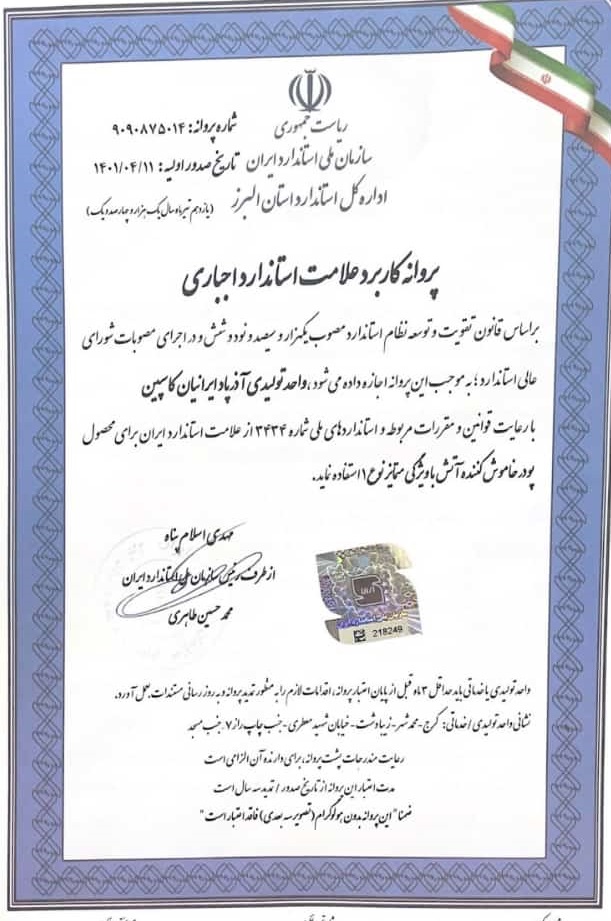 ریاست جمهوری
سازمان ملی استاندارد ایران
اداره کل استاندارد استان البرز
شماره پروانه: ۹۰۹۰۸۷۵۰۱۴
تاریخ صدور اولیه: ۱۴۰۱/۰۴/۱۱
(یازدهم تیر ماه سال یک هزار و چهارصد و یک)
پروانه کاربرد علامت استاندارد اجباری
براساس قانون تقویت و توسعه نظام استاندارد مصوب یکهزار و سیصد و نود و شش و در اجرای مصوبات شورای
عالی استاندارد ؛ به موجب این پروانه اجازه داده می شود ، واحد تولیدی آذر پاد ایرانیان کاسپین
با رعایت قوانین و مقررات مربوطه و استانداردهای ملی شماره ۳۴۳۴ از علامت استاندارد ایران برای محصول
پودر خاموش کننده آتش با ویژگی متمایز نوع ۱ استفاده نماید.
مهدی اسلام پناه
از طرف رئیس سازمان ملی استاندارد ایران
محمد حسین طاهری
218249
واحد تولیدی یا خدماتی باید حداقل ۳ ماه قبل از پایان اعتبار پروانه، اقدامات لازم را به منظور تمدید پروانه و به روز رسانی مستندات بعمل آورد.
نشانی واحد تولیدی / خدماتی: کرج - محمد شهر - زیبا دشت - خیابان شهید مطهری - جنب چاپ راز ۷ - جنب مسجد
رعایت مندرجات پشت پروانه، برای دارنده آن الزامی است
مدت اعتبار این پروانه از تاریخ صدور / تمدید سه سال است
ضمنا " این پروانه بدون هولوگرام (تصویر سه بعدی) فاقد اعتبار است "